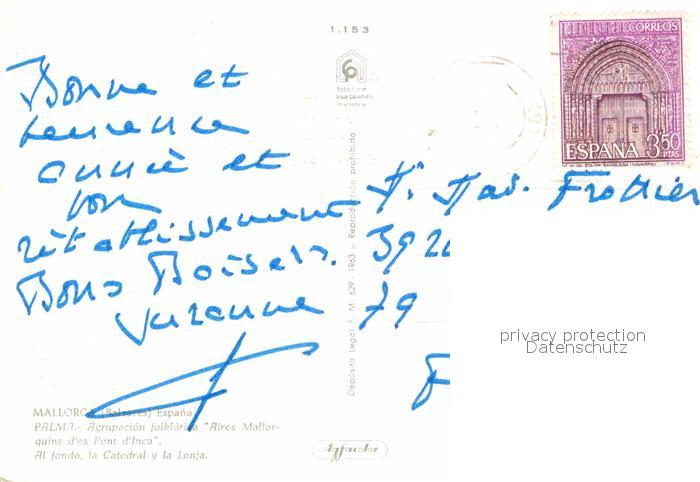 1.153
CORREOS
foto cine
casa planas
mallorca
ESPAÑA 3'50 PTAS
Bonne et
heureuse
année et
bon
rétablissement
Bons Baisers.
Suzanne
Frottier
392
79
F
Deposito Legal B. M. 629 - 1963 :: Reproducción prohibida
privacy protection
Datenschutz
MALLORCA (Baleares) España
PALMA.- Agrupación folklórica "Aires Mallor-
quins d'es Pont d'Inca".
Al fondo, la Catedral y la Lonja.
Agfacolor